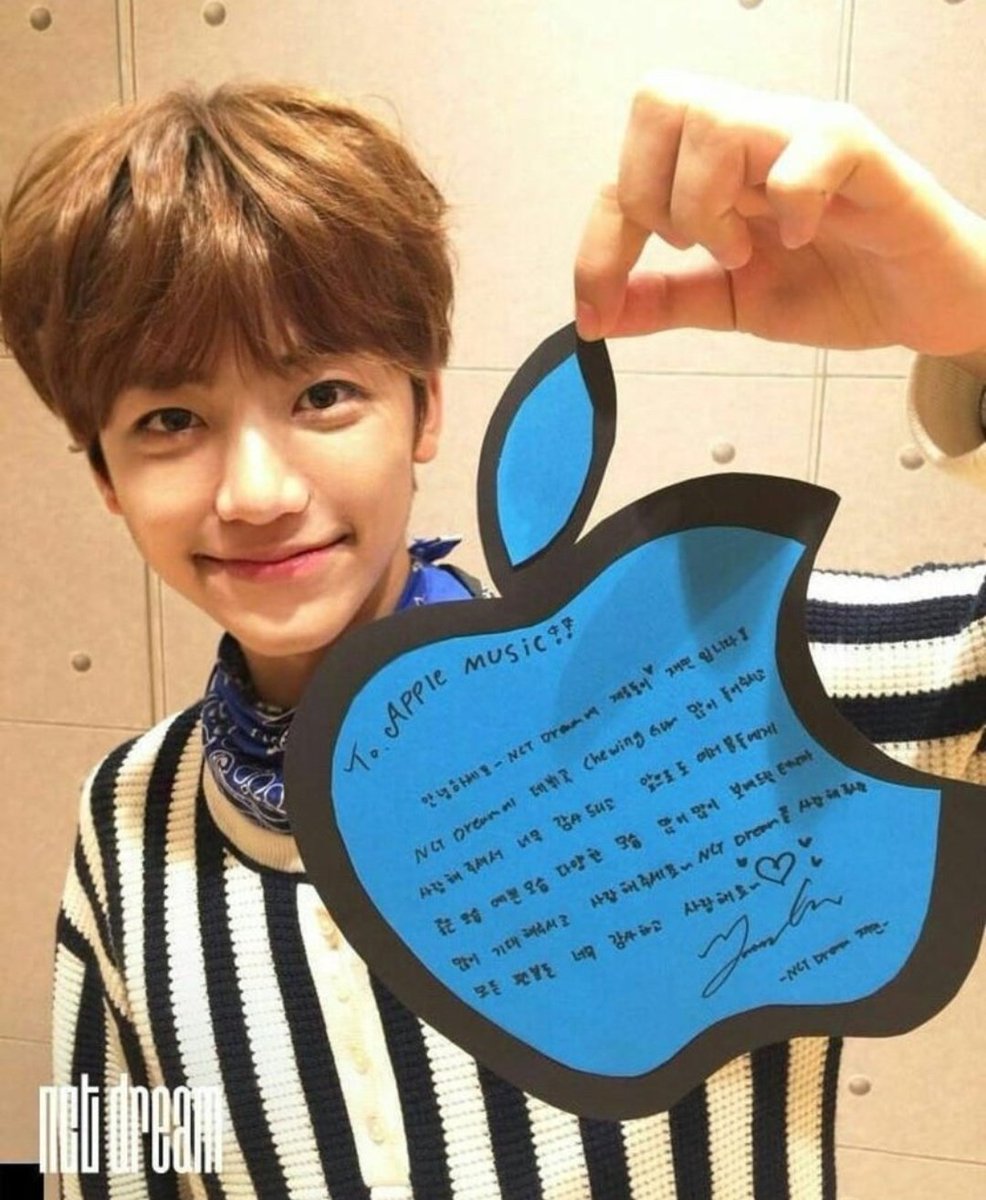 To. APPle MUSiC !!
안녕하세요~ NCT Dream에 재롱둥이 재민 입니다!
NCT Dream에 데뷔곡 Chewing Gum 많이 들어주시고
사랑해 주셔서 너무 감사드리고 앞으로도 여러분들에게
좋은 모습 예쁜모습 다양한 모습 많이많이 보여드릴테니까
많이 기대해주시고 사랑해주세요~ NCT Dream을 사랑해주는
모든 팬분들 너무 감사하고 사랑해요~
-NCT Dream 재민-
nct dream